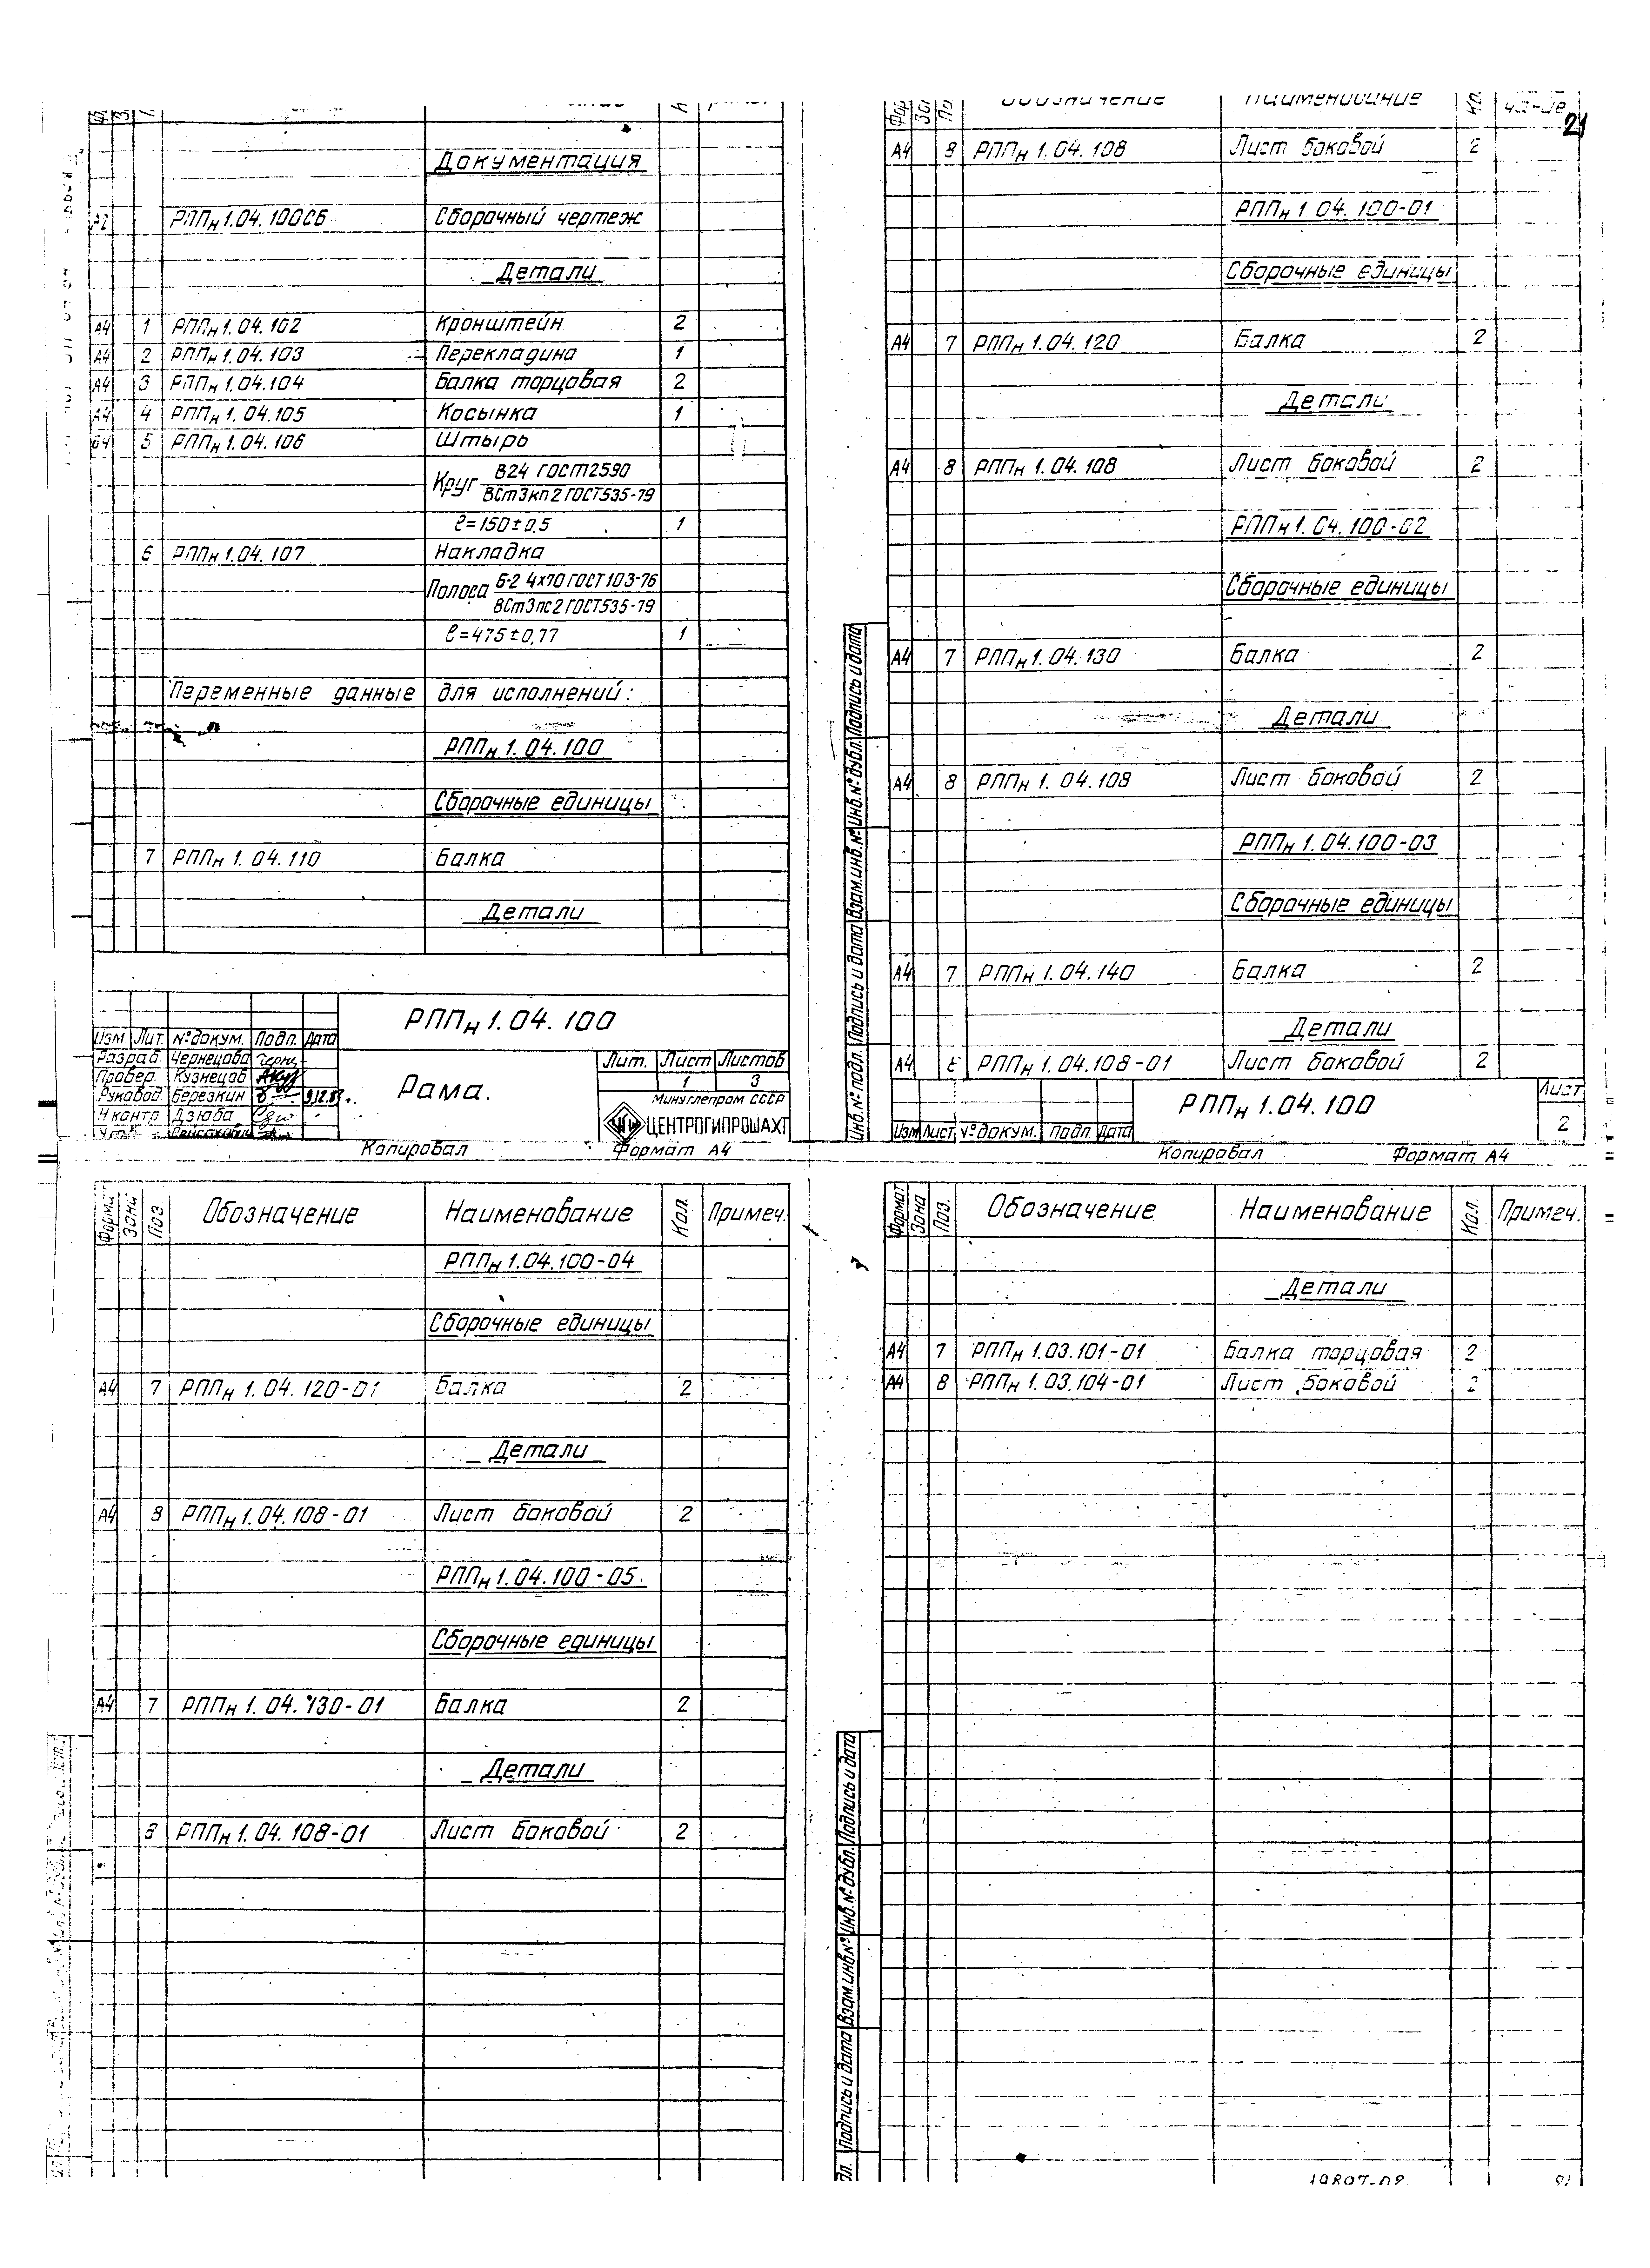 Документация
А2 РППн 1.04.100СБ Сборочный чертеж
Детали
А4 1 РППн 1.04.102 Кронштейн 2
А4 2 РППн 1.04.103 Перекладина 1
А4 3 РППн 1.04.104 Балка торцовая 2
А4 4 РППн 1.04.105 Косынка 1
Б4 5 РППн 1.04.106 Штырь
Круг В24 ГОСТ2590
ВСт3кп2 ГОСТ535-79
ℓ=150±0,5 1
6 РППн 1.04.107 Накладка
Полоса Б-2 4х70 ГОСТ103-76
ВСт3пс2 ГОСТ535-79
ℓ=475±0,77 1
Переменные данные для исполнений:
РППн 1.04.100
Сборочные единицы
7 РППн 1.04.110 Балка
Детали
РППн 1.04.100
Изм. Лит. № докум. Подп. Дата
Разраб. Чернецова
Провер. Кузнецов
Руковод Березкин
Н контр Дзюба
Рама.
Лит. Лист Листов
1 3
Минуглепром СССР
ЦЕНТРОГИПРОШАХТ
Копировал Формат А4
Обозначение Наименование
21
А4 8 РППн 1.04.108 Лист боковой 2
РППн 1.04.100-01
Сборочные единицы
А4 7 РППн 1.04.120 Балка 2
Детали
А4 8 РППн 1.04.108 Лист боковой 2
РППн 1.04.100-02
Сборочные единицы
А4 7 РППн 1.04.130 Балка 2
Детали
А4 8 РППн 1.04.108 Лист боковой 2
РППн 1.04.100-03
Сборочные единицы
А4 7 РППн 1.04.140 Балка 2
Детали
А4 РППн 1.04.108-01 Лист боковой 2
Инв.№ подл. Подпись и дата Взам.инв.№ Инв.№ дубл. Подпись и дата
РППн 1.04.100
Лист
2
Изм Лист № докум. Подп. Дата
Копировал Формат А4
Формат Зона Поз. Обозначение Наименование Кол. Примеч.
РППн 1.04.100-04
Сборочные единицы
А4 7 РППн 1.04.120-01 Балка 2
Детали
А4 8 РППн 1.04.108-01 Лист боковой 2
РППн 1.04.100-05
Сборочные единицы
А4 7 РППн 1.04.130-01 Балка 2
Детали
8 РППн 1.04.108-01 Лист боковой 2
Формат Зона Поз. Обозначение Наименование Кол. Примеч.
Детали
А4 7 РППн 1.03.101-01 Балка торцовая 2
А4 8 РППн 1.03.104-01 Лист боковой 2
Подпись и дата Взам.инв.№ Инв.№ дубл. Подпись и дата